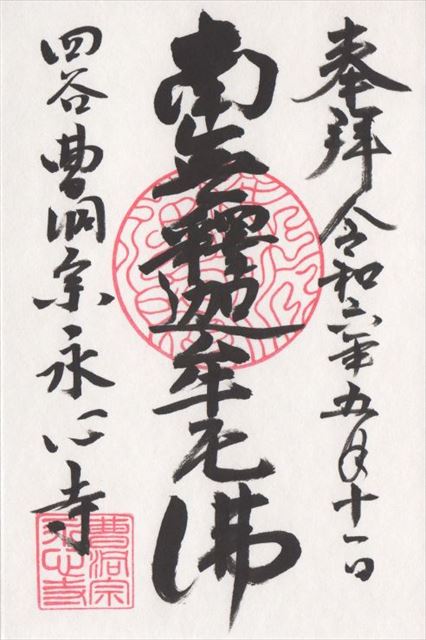 奉拝 令和六年五月十一日
南無釋迦牟尼佛
四谷 曹洞宗 永心寺
曹洞宗
永心寺